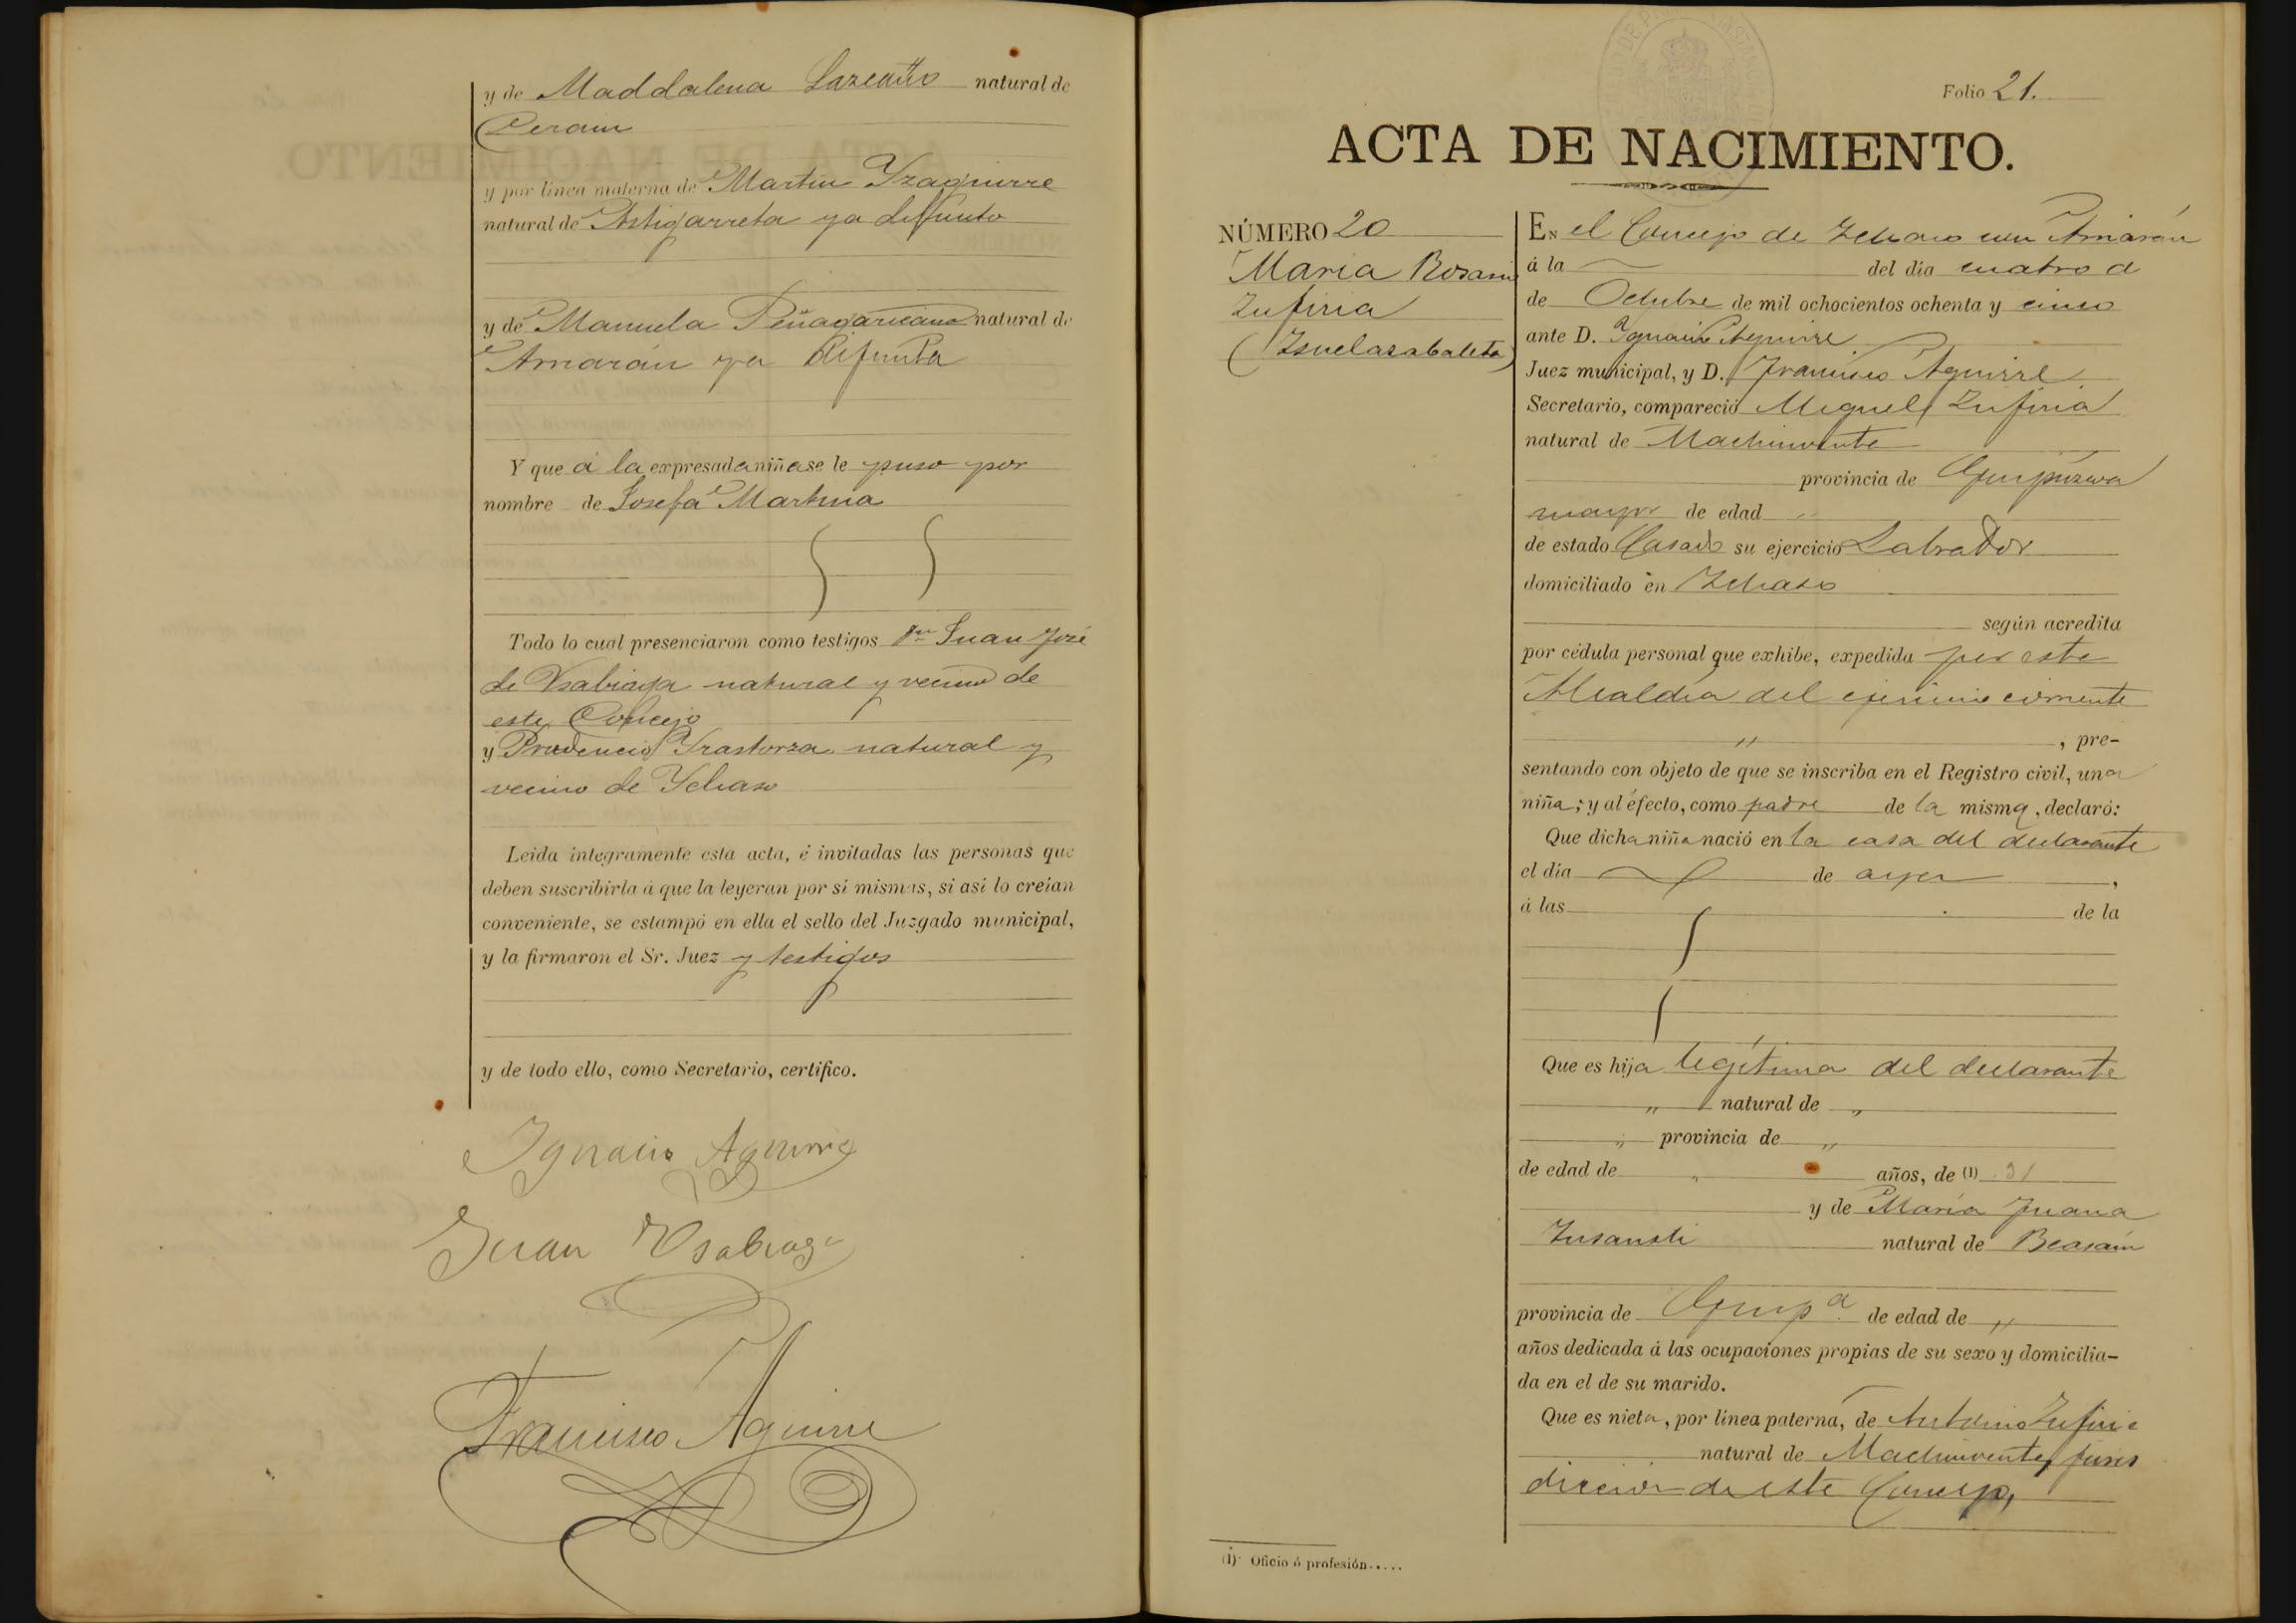 y de Maddalena Lazcano natural de
Cerain
y por línea materna de Martin Yzaguirre
natural de Astigarreta ya difunto
y de Manuela Peñagaricano natural de
Arriarán ya difunta
Y que á la expresada niña se le puso por
nombre de Josefa Martina
Todo lo cual presenciaron como testigos Juan José
de Usabiaga natural y vecino de
este Concejo
y Prudencio Yrastorza natural y
vecino de Ychaso
Leida íntegramente esta acta, é invitadas las personas que
deben suscribirla á que la leyeran por sí mismas, si así lo creían
conveniente, se estampó en ella el sello del Juzgado municipal,
y la firmaron el Sr. Juez y testigos
y de todo ello, como Secretario, certifico.
Ygnacio Aguirre
Juan Usabiaga
Francisco Aguirre
Folio 21.
ACTA DE NACIMIENTO.
NÚMERO 20
Maria Rosario
Zufiria
(Ysuelasabaleta)
EN el Concejo de Ychaso con Arriarán
á la del día cuatro d
de Octubre de mil ochocientos ochenta y cinco
ante D. Ygnacio Aguirre
Juez municipal, y D. Francisco Aguirre
Secretario, compareció Miguel Zufiria
natural de Machinventa
provincia de Guipúzcoa
mayor de edad "
de estado Casado su ejercicio Labrador
domiciliado en Ychaso
según acredita
por cédula personal que exhibe, expedida por esta
Alcaldía del ejercicio corriente
" , pre-
sentando con objeto de que se inscriba en el Registro civil, una
niña; y al efecto, como padre de la misma, declaró:
Que dicha niña nació en la casa del declarante
el día de ayer ,
á las de la
Que es hija legítima del declarante
" natural de "
" provincia de "
de edad de " años, de (1) 31
y de María Juana
natural de Beasain
provincia de Guipª de edad de "
años dedicada á las ocupaciones propias de su sexo y domicilia-
da en el de su marido.
Que es nieta, por línea paterna, de Antonio Zufiria
natural de Machinventa,
de este Concejo,
(1) Oficio ó profesión.....